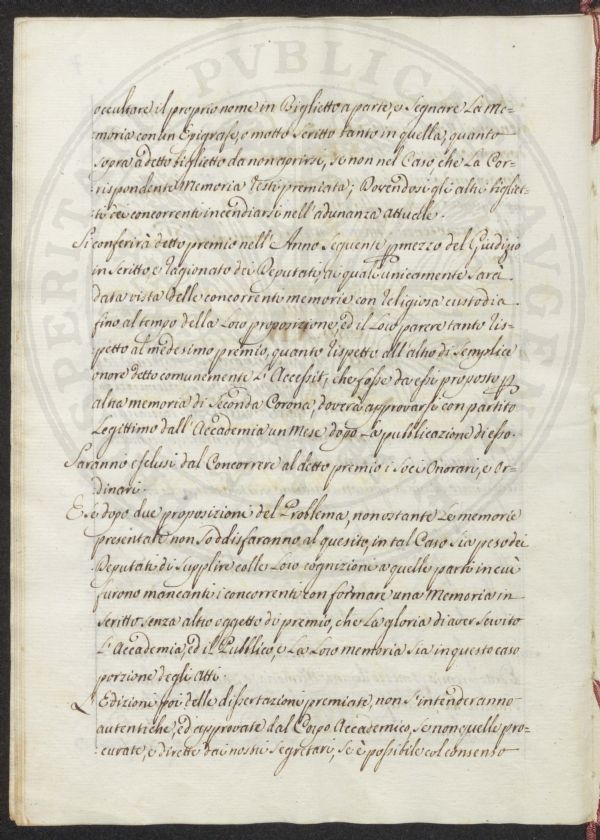 occultare il proprio nome in Biglietto a parte, e Segnare La Me-
moria con un Epigrafe, o motto Scritto tanto in quella, quanto
sopra a detto biglietto da non aprirsi, se non nel Caso, che La Cor-
rispondente Memoria resti premiata; Dovendosi gli altri bigliet-
ti dei concorrenti incendiarsi nell'adunanza attuale.
Si conferirà detto premio nell'Anno Seguente p mezzo del Giudizio
in Scritto e ragionato dei Deputati, a quali unicamente sarà
data vista delle concorrenti memorie con religiosa custodia
fino al tempo della Loro proposizione, ed il Loro parere tanto ris-
petto al medesimo premio, quanto rispetto all'altro di Semplice
onore detto comunemente L'Accessit, che fosse da essi proposto p
altra memoria di Seconda Corona, dovrà approvarsi con partito
Legittimo dall'Accademia un Mese dopo La pubblicazione di esso.
Saranno esclusi dal Concorrere al detto premio i Soci Onorari, e Or-
dinari.
E se dopo due proposizioni del Problema, non ostante Le memorie
presentate non Soddisfaranno al quesito, in tal Caso Sia peso dei
Deputati di Supplire colle Loro cognizioni a quelle parti in cui
furono mancanti i concorrenti con formare una Memoria in
Scritto senza altro oggetto di premio, che La gloria di aver Servito
L'Accademia, ed il Pubblico, e La Loro memoria Sia in questo caso
porzione degli Atti.
L'Edizioni poi delle dissertazioni premiate, non S'intenderanno
autentiche, ed approvate dal Corpo Accademico, Se non quelle pro-
curate, e dirette dai nostri Segretari, se è possibile col consenso